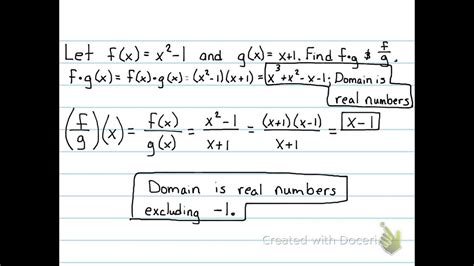 Let f(x) = x²-1 and g(x) = x+1. Find f·g & f/g.
f·g(x) = f(x)·g(x) = (x²-1)(x+1) = x³+x²-x-1; Domain is
real numbers
(f/g)(x) = f(x)/g(x) = x²-1/x+1 = (x+1)(x-1)/x+1 = x-1
Domain is real numbers
excluding -1.
Created with Doceri